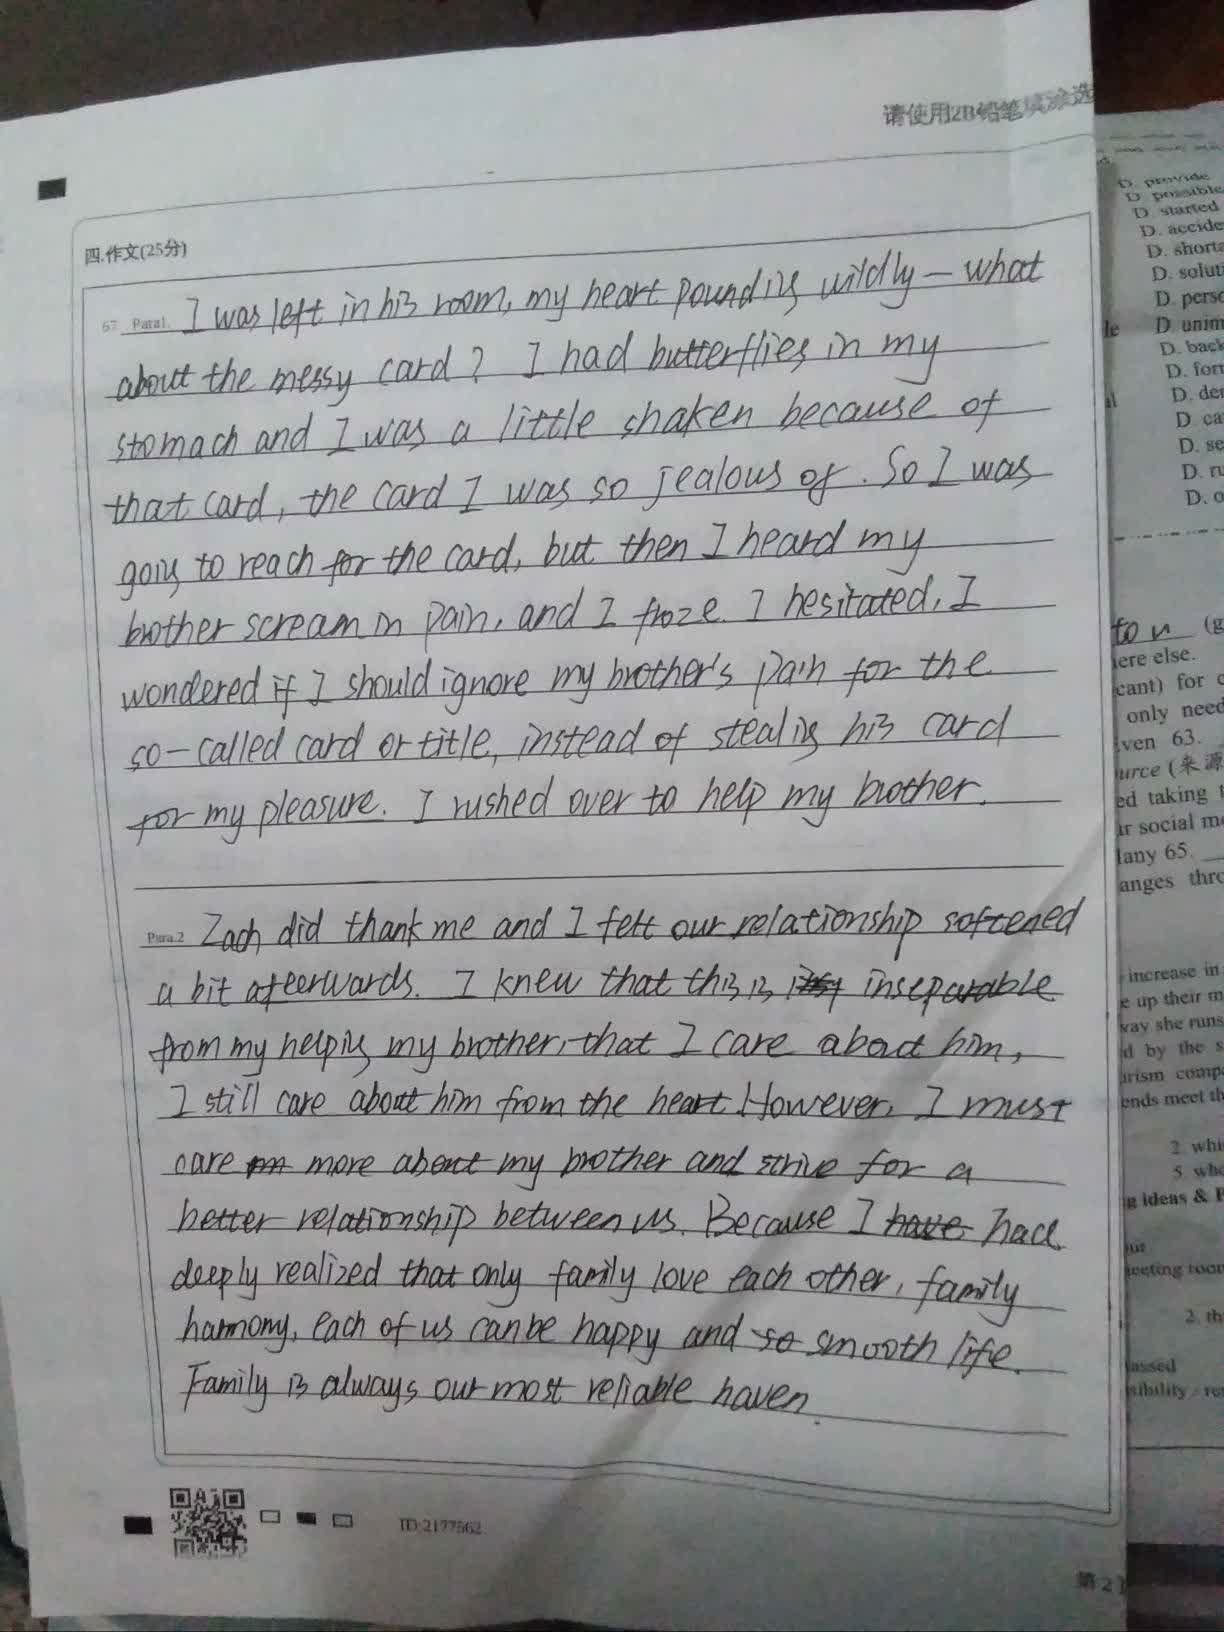 请使用2B铅笔填涂选
四.作文(25分)
67. Para1. I was left in his room, my heart pounding wildly — what
about the messy card? I had butterflies in my
stomach and I was a little shaken because of
that card, the card I was so jealous of. So I was
going to reach for the card, but then I heard my
brother scream in pain, and I froze. I hesitated, I
wondered if I should ignore my brother's pain for the
so-called card or title, instead of stealing his card
for my pleasure. I rushed over to help my brother.
Para.2 Zach did thank me and I felt our relationship softened
a bit afeerwards. I knew that this is inseparable
from my helping my brother, that I care about him,
I still care about him from the heart. However, I must
care more about my brother and strive for a
better relationship between us. Because I have had
deeply realized that only family love each other, family
harmony, each of us can be happy and so smooth life.
Family is always our most reliable haven.
ID:2177562
第2
D. provide
D. possible
D. started
D. accide
D. shorta
D. soluti
D. perso
le D. unim
D. back
D. for
al D. de
D. ca
D. se
D. ru
D. o
to n (g
ere else.
cant) for c
only need
ven 63.
urce (来源
ed taking t
ir social me
lany 65.
anges thro
increase in
e up their m
way she runs
d by the s
urism comp
ends meet th
2. whi
5. who
g ideas & P
out
eeting room
2. th
assed
sibility / re